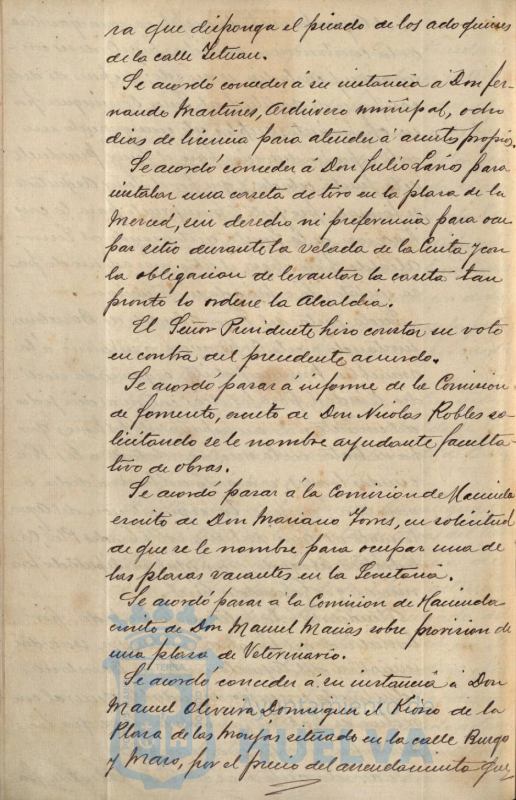 ra que disponga el picado de los adoquines
de la calle Tetuan.
Se acordó conceder á su instancia á Don Fer-
nando Martines, Archivero municipal, ocho
dias de licencia para atender á asuntos propios.
Se acordó conceder á Don Julio Laños para
instalar una caseta de tiro en la plaza de la
Merced, sin derecho ni preferencia para ocu-
par sitio durante la velada de la Cinta y con
la obligacion de levantar la caseta tan
pronto lo ordene la Alcaldia.
El Señor Presidente hizo constar su voto
en contra del precedente acuerdo.
Se acordó pasar á informe de la Comision
de fomento, escrito de Don Nicolas Robles so-
licitando se le nombre ayudante faculta-
tivo de obras.
Se acordó pasar á la Comision de Hacienda
escrito de Don Mariano Torres, en solicitud
de que se le nombre para ocupar una de
las plazas vacantes en la Secretaria.
Se acordó pasar á la Comision de Hacienda
escrito de Don Manuel Macias sobre provision de
una plaza de Veterinario.
Se acordó conceder á su instancia á Don
Manuel Oliveira Dominguez el Kiosco de la
Plaza de las Monjas situado en la calle Burgo
y Mazo, por el precio del arrendamiento que
HUELVA